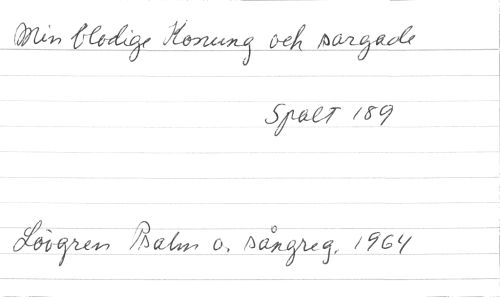 Min blodige Konung och sargade
Spalt 189
Lövgren Psalm o. sångreg. 1964